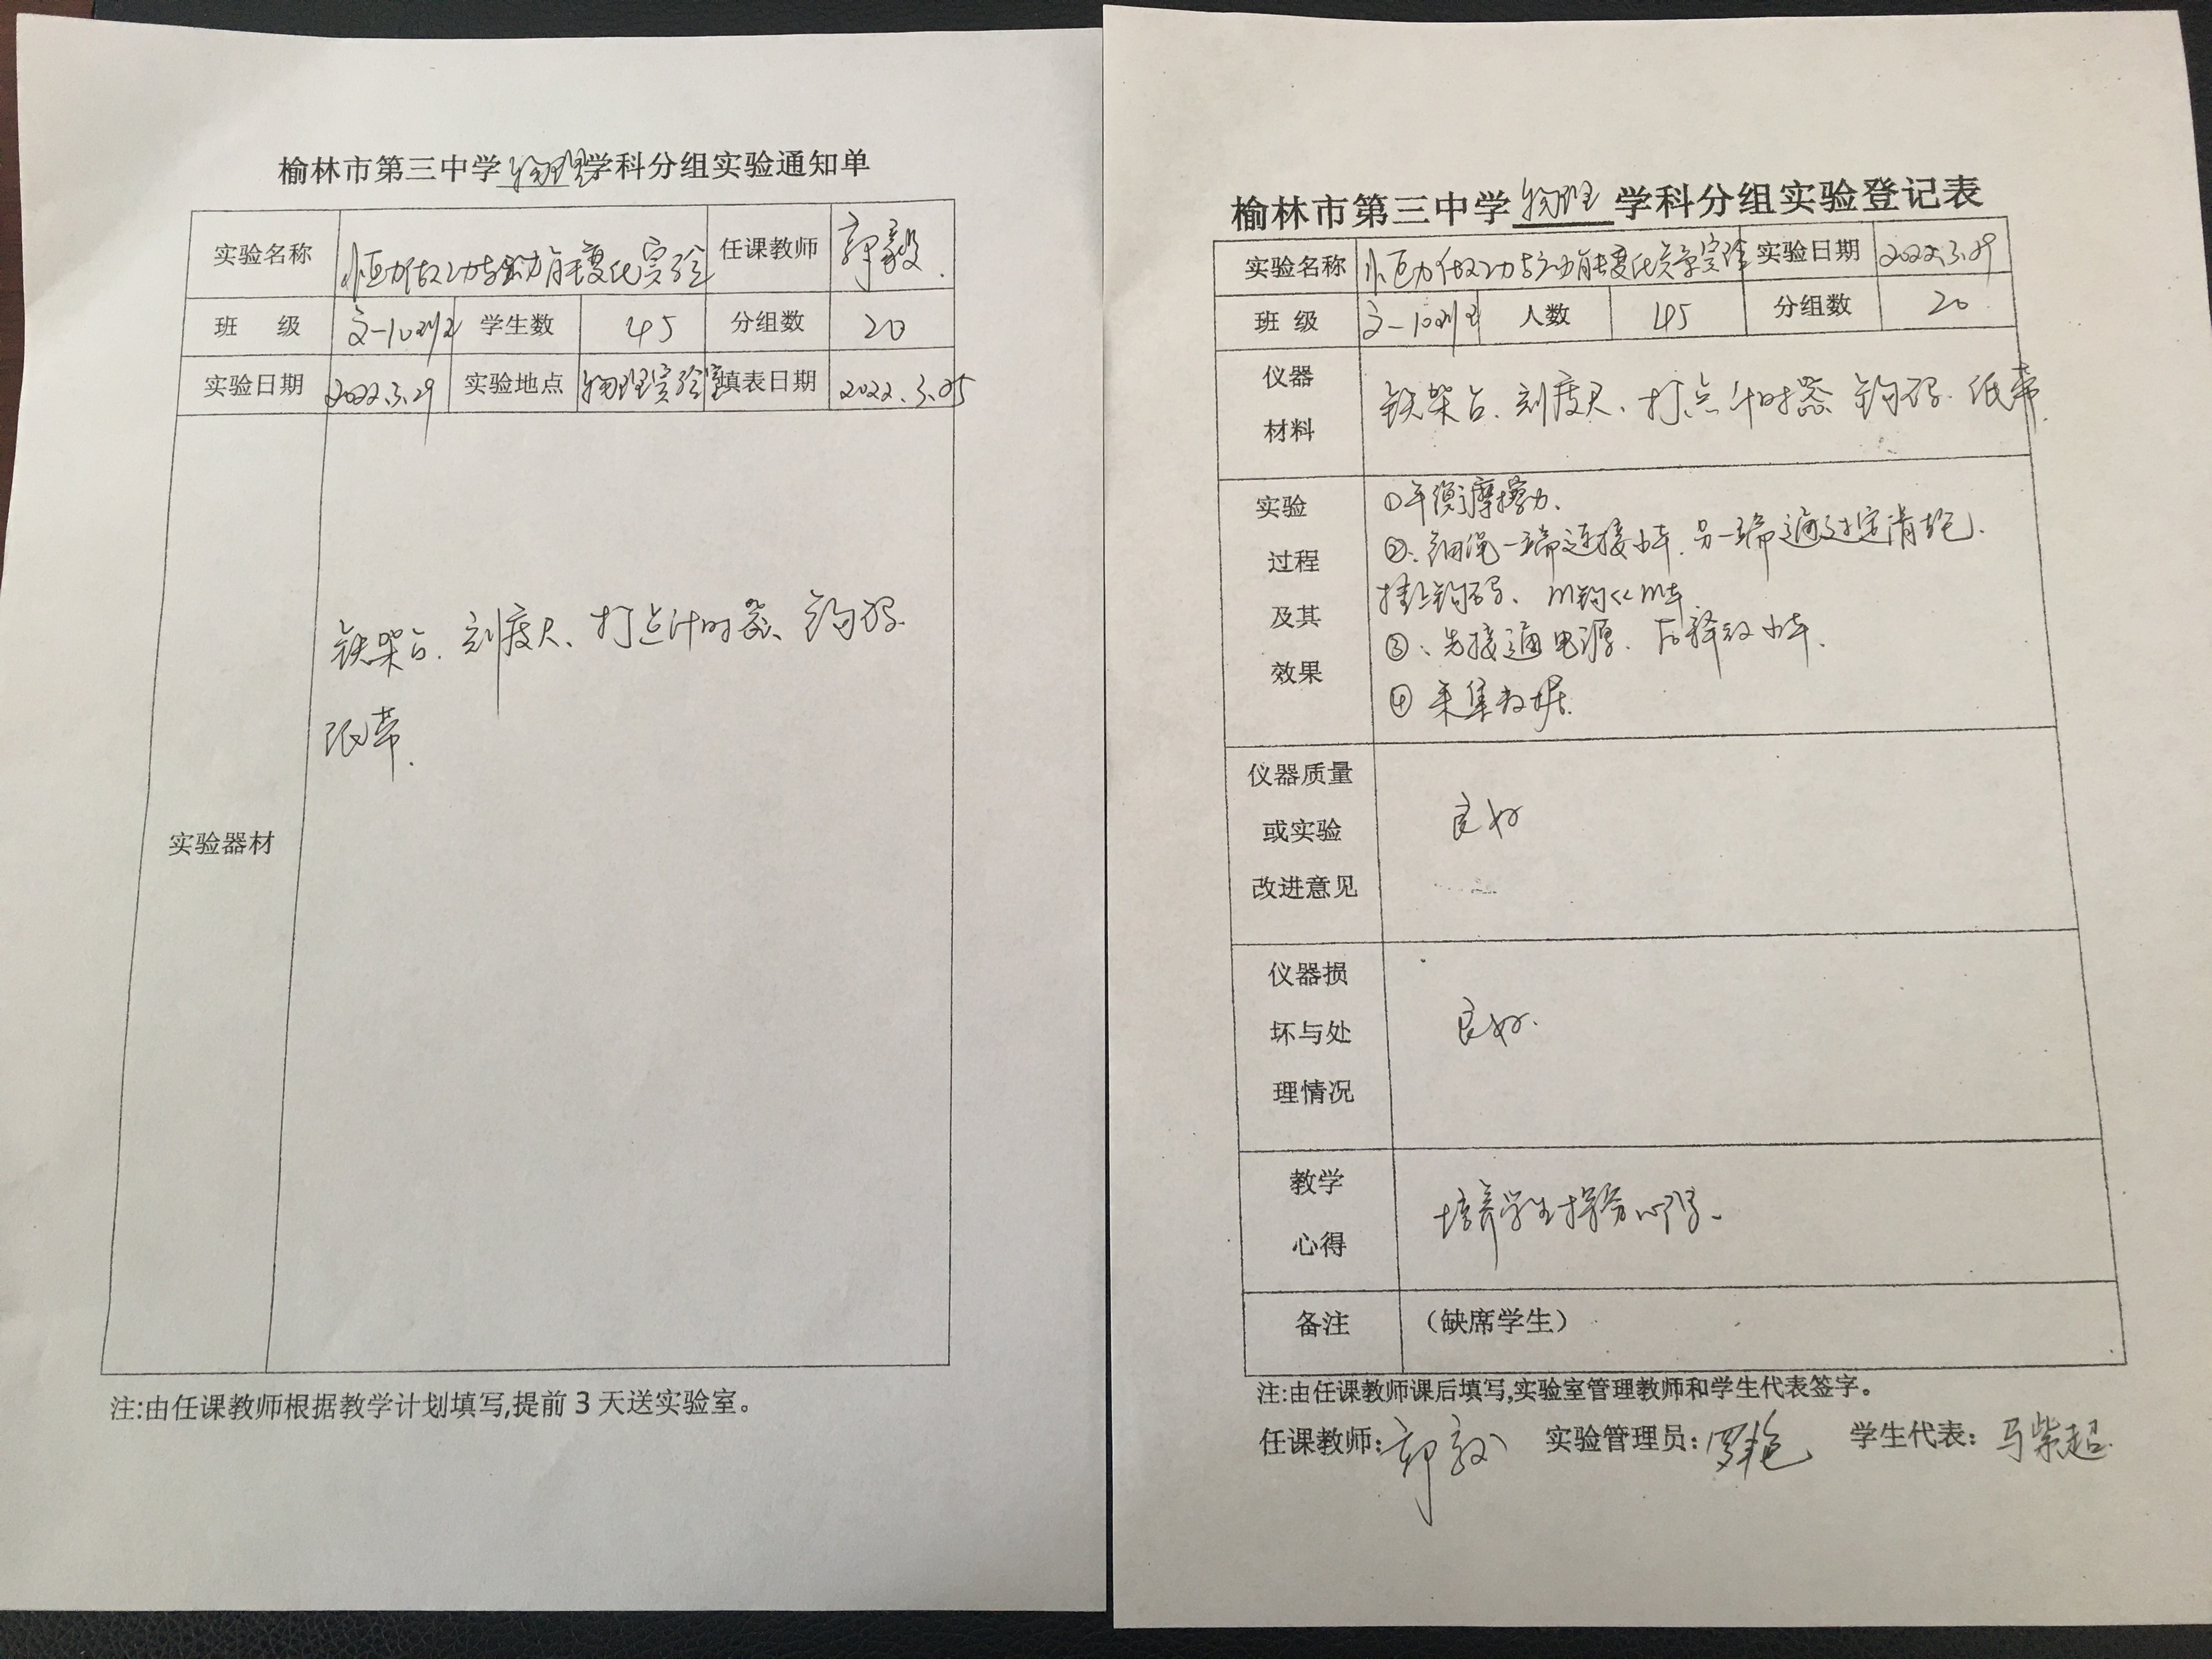 榆林市第三中学物理学科分组实验通知单
实验名称 恒力做功与动能变化实验 任课教师 郭毅
班 级 学生数 45 分组数 20
实验日期 2022.3.29 实验地点 物理实验室 填表日期 2022.3.25
实验器材
铁架台、刻度尺、打点计时器、钩码
纸带.
注:由任课教师根据教学计划填写,提前3天送实验室。
榆林市第三中学物理学科分组实验登记表
实验名称 恒力做功与动能变化关系实验 实验日期 2022.3.29
班 级 人数 45 分组数 20
仪器
材料
铁架台、刻度尺、打点计时器 钩码、纸带.
实验
过程
及其
效果
①平衡摩擦力、
②、细绳一端连接小车.另一端通过定滑轮.
挂上钩码、m钩<<m车
③、先接通电源、后释放小车.
④ 采集数据.
仪器质量
或实验
改进意见
良好
仪器损
坏与处
理情况
良好.
教学
心得
培养学生
备注 (缺席学生)
注:由任课教师课后填写,实验室管理教师和学生代表签字。
任课教师:郭毅 实验管理员:罗艳 学生代表:马柴超